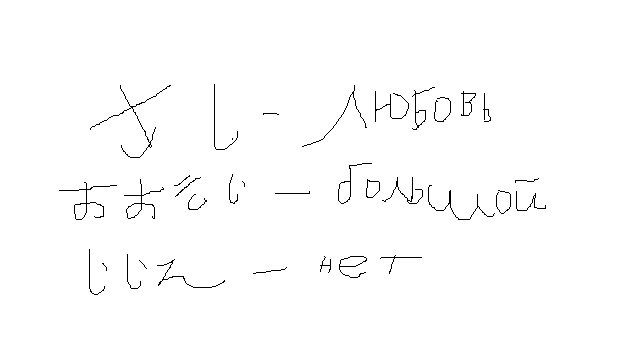 さし - любовь
おおきい — большой
いいえ — нет